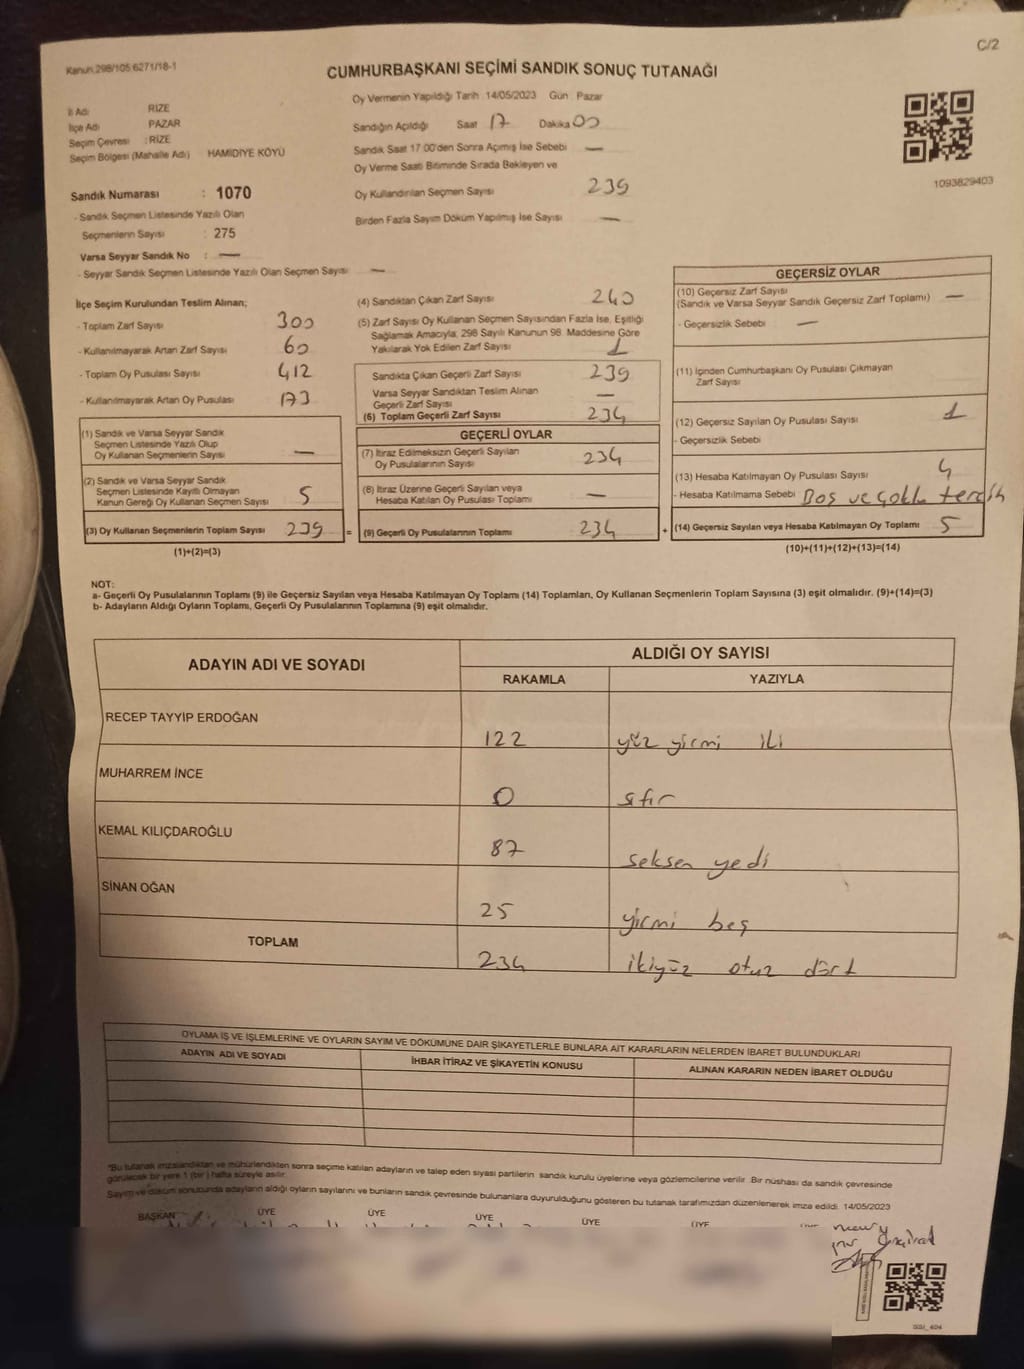 C/2
Kanun:298/105 6271/18-1
CUMHURBAŞKANI SEÇİMİ SANDIK SONUÇ TUTANAĞI
İl Adı RİZE
İlçe Adı PAZAR
Seçim Çevresi : RİZE
Seçim Bölgesi (Mahalle Adı) HAMİDİYE KÖYÜ
Sandık Numarası : 1070
- Sandık Seçmen Listesinde Yazılı Olan
Seçmenlerin Sayısı : 275
Varsa Seyyar Sandık No : —
- Seyyar Sandık Seçmen Listesinde Yazılı Olan Seçmen Sayısı —
Oy Vermenin Yapıldığı Tarih :14/05/2023 Gün : Pazar
Sandığın Açıldığı Saat 17 Dakika 00
Sandık Saat 17:00'den Sonra Açılmış İse Sebebi —
Oy Verme Saati Bitiminde Sırada Bekleyen ve
Oy Kullandırılan Seçmen Sayısı 239
Birden Fazla Sayım Döküm Yapılmış İse Sayısı —
1093829403
İlçe Seçim Kurulundan Teslim Alınan;
- Toplam Zarf Sayısı 300
- Kullanılmayarak Artan Zarf Sayısı 60
- Toplam Oy Pusulası Sayısı 412
- Kullanılmayarak Artan Oy Pusulası 173
(1) Sandık ve Varsa Seyyar Sandık
Seçmen Listesinde Yazılı Olup
Oy Kullanan Seçmenlerin Sayısı —
(2) Sandık ve Varsa Seyyar Sandık
Seçmen Listesinde Kayıtlı Olmayan
Kanun Gereği Oy Kullanan Seçmen Sayısı 5
(3) Oy Kullanan Seçmenlerin Toplam Sayısı 239 =
(1)+(2)=(3)
(4) Sandıktan Çıkan Zarf Sayısı 240
(5) Zarf Sayısı Oy Kullanan Seçmen Sayısından Fazla İse, Eşitliği
Sağlamak Amacıyla; 298 Sayılı Kanunun 98. Maddesine Göre
Yakılarak Yok Edilen Zarf Sayısı 1
Sandıkta Çıkan Geçerli Zarf Sayısı 239
Varsa Seyyar Sandıktan Teslim Alınan
Geçerli Zarf Sayısı —
(6) Toplam Geçerli Zarf Sayısı 234
GEÇERLİ OYLAR
(7) İtiraz Edilmeksizin Geçerli Sayılan
Oy Pusulalarının Sayısı 234
(8) İtiraz Üzerine Geçerli Sayılan veya
Hesaba Katılan Oy Pusulası Toplamı —
(9) Geçerli Oy Pusulalarının Toplamı 234 +
GEÇERSİZ OYLAR
(10) Geçersiz Zarf Sayısı
(Sandık ve Varsa Seyyar Sandık Geçersiz Zarf Toplamı) —
- Geçersizlik Sebebi —
(11) İçinden Cumhurbaşkanı Oy Pusulası Çıkmayan
Zarf Sayısı
(12) Geçersiz Sayılan Oy Pusulası Sayısı 1
- Geçersizlik Sebebi
(13) Hesaba Katılmayan Oy Pusulası Sayısı 4
- Hesaba Katılmama Sebebi Boş ve çoklu tercih
(14) Geçersiz Sayılan veya Hesaba Katılmayan Oy Toplamı 5
(10)+(11)+(12)+(13)=(14)
NOT:
a- Geçerli Oy Pusulalarının Toplamı (9) ile Geçersiz Sayılan veya Hesaba Katılmayan Oy Toplamı (14) Toplamları, Oy Kullanan Seçmenlerin Toplam Sayısına (3) eşit olmalıdır. (9)+(14)=(3)
b- Adayların Aldığı Oyların Toplamı, Geçerli Oy Pusulalarının Toplamına (9) eşit olmalıdır.
ADAYIN ADI VE SOYADI ALDIĞI OY SAYISI
RAKAMLA YAZIYLA
RECEP TAYYİP ERDOĞAN 122 yüz yirmi iki
MUHARREM İNCE 0 sıfır
KEMAL KILIÇDAROĞLU 87 seksen yedi
SİNAN OĞAN 25 yirmi beş
TOPLAM 234 ikiyüz otuz dört
OYLAMA İŞ VE İŞLEMLERİNE VE OYLARIN SAYIM VE DÖKÜMÜNE DAİR ŞİKAYETLERLE BUNLARA AİT KARARLARIN NELERDEN İBARET BULUNDUKLARI
ADAYIN ADI VE SOYADI İHBAR İTİRAZ VE ŞİKAYETİN KONUSU ALINAN KARARIN NEDEN İBARET OLDUĞU
*Bu tutanak imzalandıktan ve mühürlendikten sonra seçime katılan adayların ve talep eden siyasi partilerin sandık kurulu üyelerine veya gözlemcilerine verilir. Bir nüshası da sandık çevresinde
görülecek bir yere 1 (bir) hafta süreyle asılır.
Sayım ve döküm sonucunda adayların aldığı oyların sayılarını ve bunların sandık çevresinde bulunanlara duyurulduğunu gösteren bu tutanak tarafımızdan düzenlenerek imza edildi. 14/05/2023
BAŞKAN ÜYE ÜYE ÜYE ÜYE ÜYE